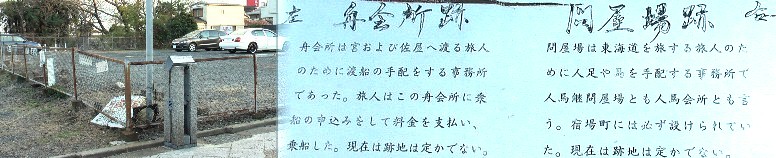 左
舟会所跡
舟会所は宮および佐屋へ渡る旅人
のために渡船の手配をする事務所
であった。旅人はこの舟会所に乗
船の申込みをして料金を支払い、
乗船した。現在は跡地は定かでない。
問屋場跡
右
問屋場は東海道を旅する旅人のた
めに人足や馬を手配する事務所で
人馬継問屋場とも人馬会所とも言
う。宿場町には必ず設けられてい
た。現在は跡地は定かでない。